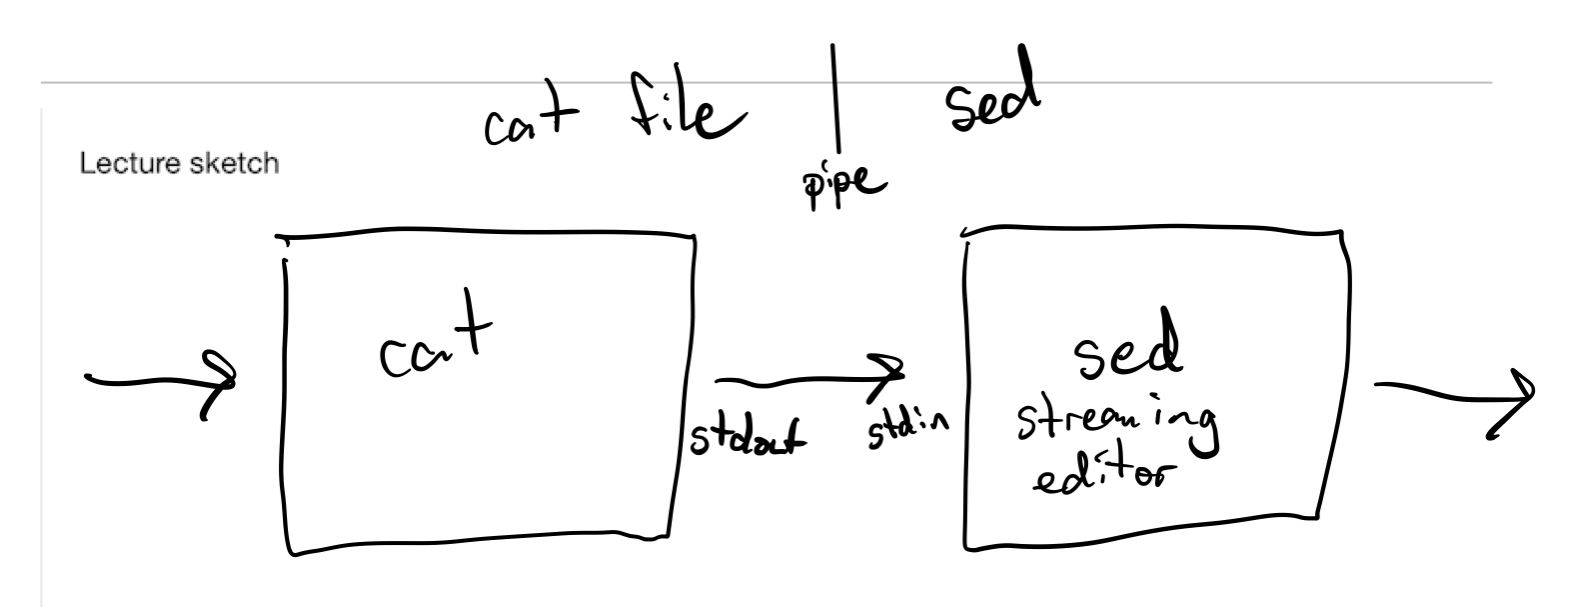 cat file | sed
Lecture sketch
pipe
cat
stdout
stdin
sed
streaming
editor